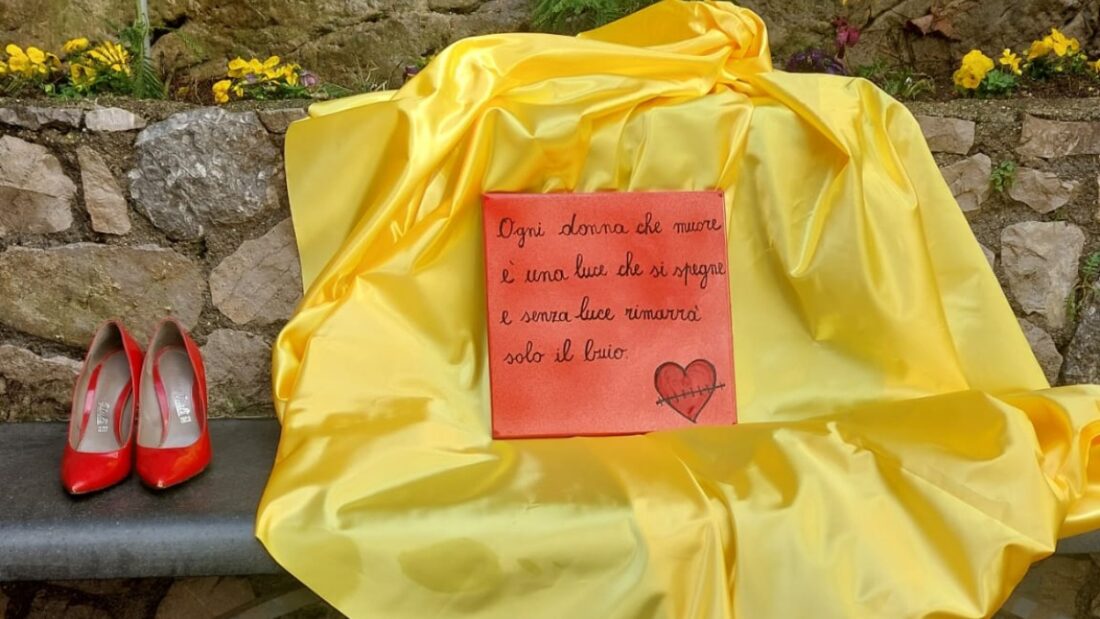 Ogni donna che muore
è una luce che si spegne
e senza luce rimarrà
solo il buio.